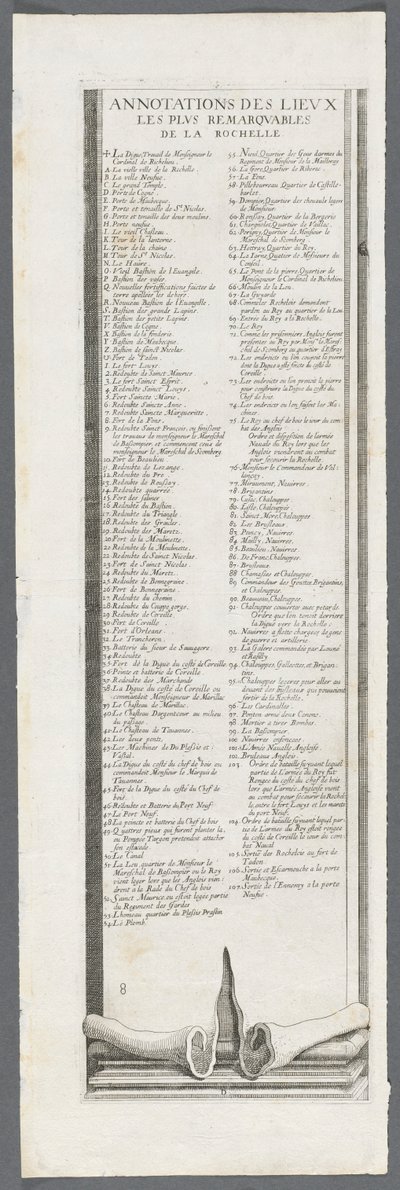 ANNOTATIONS DES LIEVX
LES PLVS REMARQVABLES
DE LA ROCHELLE.
La Digue, Trauail de Monseigneur le
Cardinal de Richelieu.
A. La vielle ville de la Rochelle.
B. La ville Neufue.
C. Le grand Temple.
D. Porte de Cogne.
E. Porte de Maubecque.
F. Porte et tenaille de St. Nicolas.
G. Porte et tenaille des deux moulins.
H. Porte neufue
I. Le vieil Chasteau
K. Tour de la lanterne.
L. Tour de la chaine
M. Tour de St. Nicolas.
N. Le Haure.
O. Vieil Bastion de l'Euangile.
P. Bastion des vases
Q. Nouvelles fortiffications faictes de
terre apellees les dehors
R. Nouveau Bastion de l'Euangille
S. Bastion des grands Lapins.
T. Bastion des petits Lapins.
V. Bastion de Cogne.
X. Bastion de la fonderie
Y. Bastion de Maubecque.
Z. Bastion de sainct Nicolas
1. Le fort Louys
2. Redoubte de Sainct Maurice
3. Le fort Sainct Esprit.
4. Redoubte Sainct Louys.
5. Fort Saincte Marie.
6. Redoubte Saincte Anne.
7. Redoubte Saincte Margueritte.
8. Fort de la Fons.
9. Redoubte Sainct François, ou finissent
les trauaux de monseigneur le Mareschal
de Bassompier, et commencent ceux de
monseigneur le Mareschal de Scomberg
10. Fort de Beaulieu
11. Redoubte de Lozange.
12. Redoubte du Pré
13. Redoubte de Roussay.
14. Redoubte quarree.
15. Fort des salines
16. Redoubte du Bastion
17. Redoubte du Triangle
18. Redoubte des Grides.
19. Redoubte des Maretz.
20. Fort de la Moulinette.
21. Redoubte de la Moulinette.
22. Redoubte de Sainct Nicolas
23. Fort de Sainct Nicolas
24. Redoubte du Maretz.
25. Redoubte de Bonnegraine.
26. Fort de Bonnegraine.
27. Redoubte du Chemin
28. Redoubte du Couppe gorge.
29. Redoubte de Coreille
30. Fort de Coreille
31. Fort d'Orleans.
32. Le Trancheron.
33. Batterie du sieur de
34. Redoubte
35. Fort de la Digue du costé de Coreille
36. Pointe et batterie de Coreille
37. Redoubte des Marchands
38. La Digue du costé de Coreille ou
commandoit Monseigneur de Marillac
39. Le Chasteau de Marillac.
40. Le Chasteau Dargentcour au milieu
du passage
41. Le Chasteau de Tauannes.
42. Les deux ponts.
43. Les Machines de Du Plessis et
44. La Digue du costé du chef de bois ou
commandoit Monsieur le Marquis de
Tauannes.
45. Fort de la Digue du costé du Chef de
bois.
46. Redoubte et Batterie du Port Neuf
47. Le Port Neuf.
48. La poincte et batterie du Chef de bois
49. Quattres pieux qui furent plantez la,
ou Pompée Targon pretendoit attacher
son estacade
50. Le Canal
51. La Leu quartier de Monsieur le
Mareschal de Bassompier ou le Roy
vient loger lors que les Anglois vien
drent a la Rade du Chef de bois
52. Sainct Maurice ou estoit logée partie
du Regiment des Gardes
53. Lhoneau quartier du Plessis Praslin
54. Le Plomb.
55. Nieul, Quartier des Gens darmes du
Regiment de Monsieur de la Meilleray
56. La fore, Quartier de Riberac
57. La Fons.
58. Pilleboureau, Quartier de Castille
barlet.
59. Dompier, Quartier des cheuaulx legers
de Monsieur.
60. Ronssay, Quartier de la Bergerie
61. Chagnolet, Quartier de Vaillac.
62. Perigny, Quartier de Monsieur le
Mareschal de Scomberg
63. Hestray, Quartier du Roy.
64. La Iarne, Quartier de Messieurs du
Conseil
65. Le Pont de la pierre, Quartier de
Monseigneur le Cardinal de Richelieu
66. Moulin de la Leu
67. La Guyarde
68. Comme les Rochelois demandent
pardon au Roy au quartier de la Leu
69. Entree du Roy a la Rochelle.
70. Le Roy
71. Comme les prisonniers Anglois furent
presentez au Roy par Monsr. le Mares
chal de Scomberg au quartier d'Estray
72. Les endroicts ou l'on coupoit la pierre
dont la Digue a esté faicte du costé de
Coreille
73. Les endroicts ou l'on prenoit la pierre
pour construire la Digue du costé du
Chef de bois.
74. Les endroicts ou l'on faisoit les Ma
chines
75. Le Roy au chef de bois le iour du com
bat des Anglois
Ordre et disposition de larmée
Nauale du Roy lors que les
Anglois viendrent au combat
pour secourir la Rochelle.
76. Monsieur le Commandeur de Val
lancay.
77. Miraumont, Nauires
78. Brigantins
79. Cusac, Chalouppes
80. Lisle, Chalouppes
81. Sainct More, Chalouppes
82. Les Brusleaux
83. Poincy, Nauires.
84. Mailly, Nauires.
85. Beaulieu, Nauires
86. De Franc, Chalouppes.
87. Brusleaux
88. Chamaslac et Chalouppes.
89. Commandeur des Gouttes, Brigantins,
et Chalouppes
90. Beauuais, Chalouppes.
91. Chalouppes couuertes auec petards.
Ordre que l'on tenoit derriere
la Digue vers la Rochelle.
92. Nauires a flotte chargéez de gens
de guerre et artillerie
93. La Galere commandée par Launé
et Rasilly
94. Chalouppes, Galliottes, et Brigan
tins.
95. Chalouppes legeres pour aller au
deuant des brusleaux qui pouuoient
sortir de la Rochelle.
96. Les Cardinales.
97. Ponton armé deux Canons.
98. Mortier a tirer Bombes.
99. La Bassompier.
100. Nauires enfoncez
101. L'Armée Nauale Angloise.
102. Brusleaux Anglois
Ordre de bataille suyuant lequel
partie de l'Armée du Roy fut
Rengée du costé du chef de bois
lors que l'Armée Angloise vient
au combat pour secourir la Rochel
le, entre le fort Louys et les marets
du port Neuf.
104. Ordre de bataille suyuant lequel par
tie de l'Armée du Roy estoit rengee
du costé de Coreille le iour du com
bat Naual
105. Sortie des Rochelois au fort de
Tadon
106. Sortie et Escarmouche a la porte
Maubecque.
107. Sortie de l'Ennemy a la porte
Neufue
8